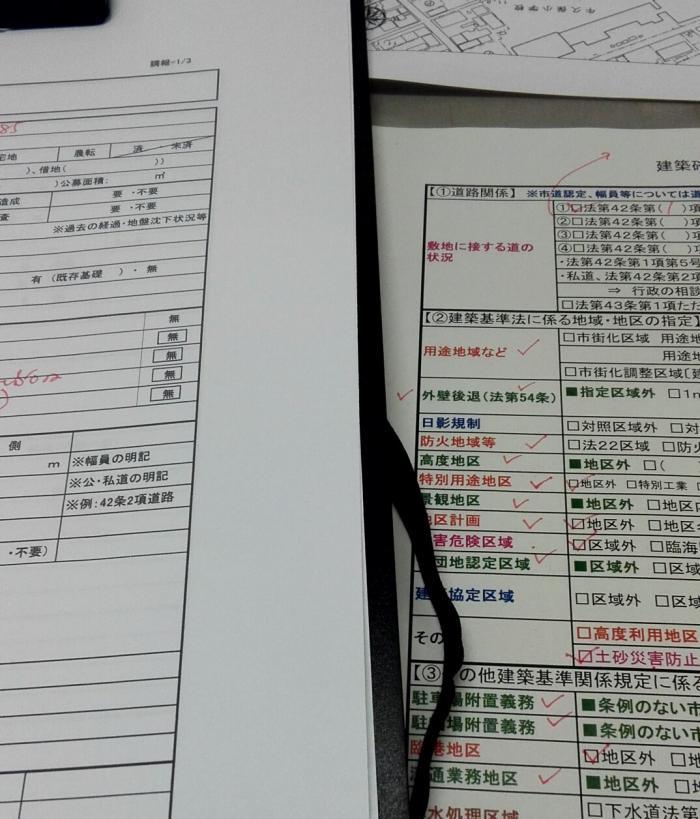 牛久保小学校
調報-1/3
85
宅地
農転
済
未済
)、借地(
))
)公募面積:
㎡
造成
要 ・不要
査
要 ・不要
※過去の経過・地盤沈下状況等
有 (既存基礎 ) ・ 無
無
無
無
無
無
側
m
※幅員の明記
※公・私道の明記
※例:42条2項道路
・不要)
建築
【①道路関係】 ※市道認定、幅員等については道
敷地に接する道の
状況
①□法第42条第( )項
②□法第42条第( )項
③□法第42条第( )項
④□法第42条第( )項
・法第42条第1項第5号
・私道、法第42条第2項
⇒ 行政の相談
□法第43条第1項ただ
【②建築基準法に係る地域・地区の指定】
用途地域など
□市街化区域 用途地
用途地
□市街化調整区域〔建
外壁後退(法第54条)
■指定区域外 □1m
日影規制
□対照区域外 □対
防火地域等
□法22区域 □防火
高度地区
■地区外 □(
特別用途地区
□地区外 □特別工業
景観地区
■地区外 □地区内
地区計画
□地区外 □地区
害危険区域
□区域外 □臨海
団地認定区域
■区域外 □区域
建 協定区域
□区域外 □区域
その
□高度利用地区
□土砂災害防止
【③その他建築基準関係規定に係る
駐車場附置義務
■条例のない市
駐 場附置義務
■条例のない市
臨港地区
□地区外 □地
通業務地区
■地区外 □地
水処理区域
□下水道法第